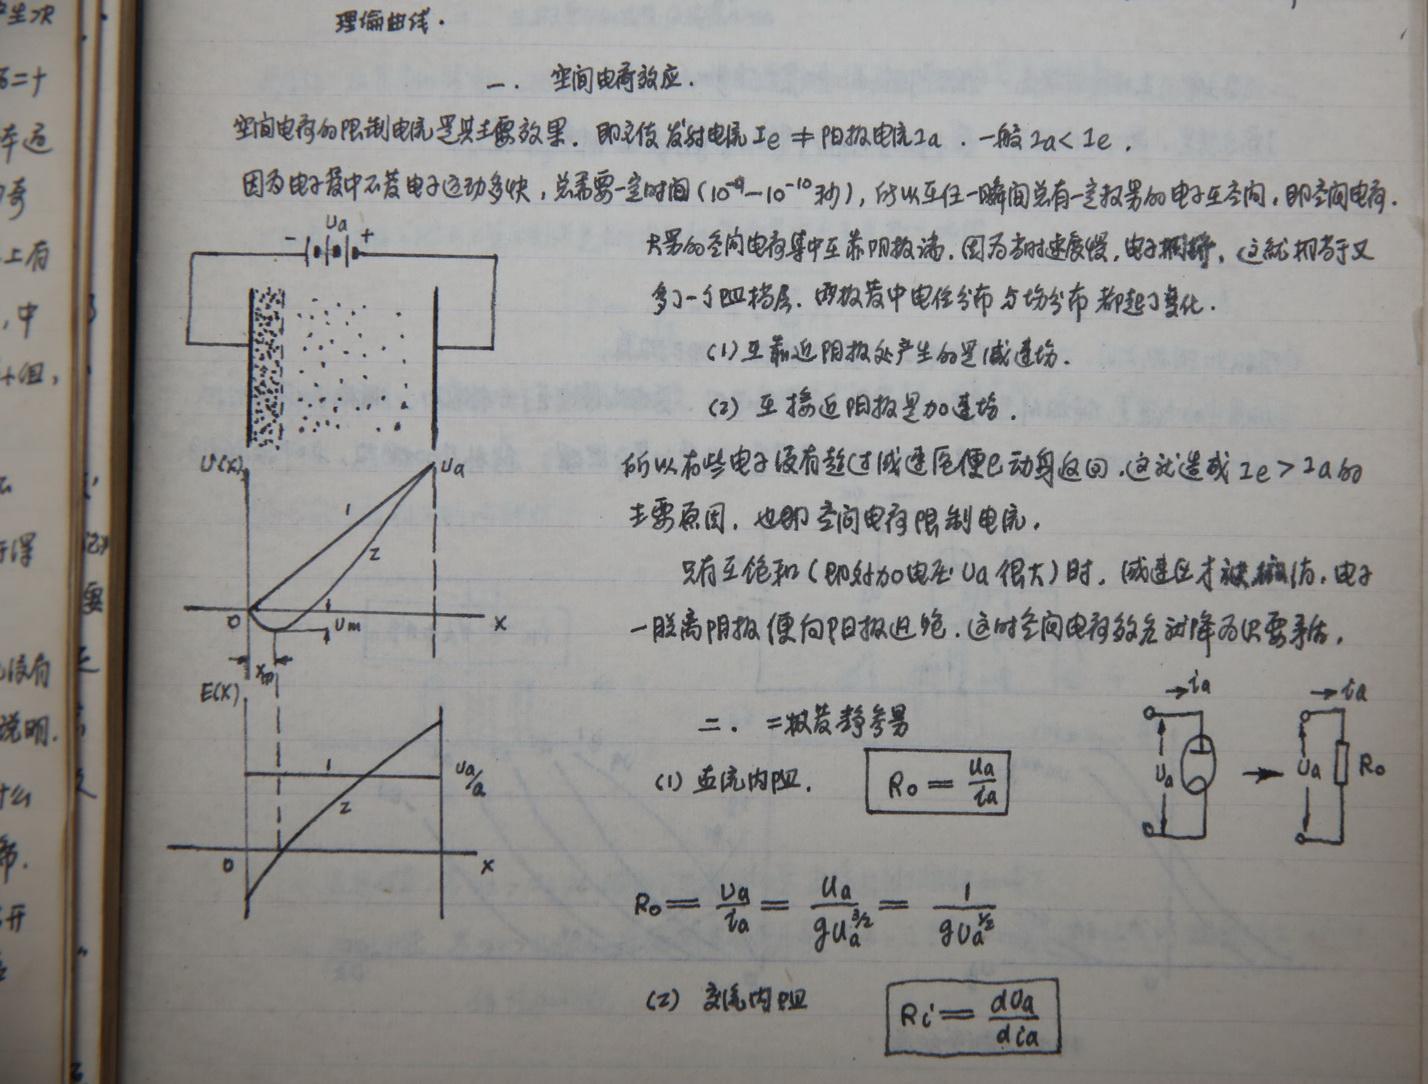 产生次
理偷曲线.
一. 空间电荷效应.
空间电荷的限制电流是其主要效果. 即它使发射电流Ie ≠ 阳极电流Ia. 一般Ia < Ie.
因为电子管中不管电子运动多快, 总需要一定时间(10⁻⁹—10⁻¹⁰秒), 所以在任一瞬间总有一定数男的电子在空间, 即空间电荷.
大男的空间电荷集中在靠阴极端. 因为当时速度慢, 电子拥挤, 这就相当于又
多了一个阻挡层. 两极管中电位分布与场分布都起了变化.
(1) 在靠近阴极处产生的是减速场.
(2) 在接近阳极是加速场.
所以有些电子没有越过减速区便已动身返回. 这就造成Ie > Ia的
主要原因. 也即空间电荷限制电流.
只有在饱和(即外加电压Ua很大)时, 减速区才被, 电子
一脱离阴极便向阳极迅跑. 这时空间电荷效应就降为次要矛盾.
- Ua +
U(X)
Ua
1
2
0
Um
X
Xm
E(X)
1
Ua/a
2
0
X
二. 二极管静参男
(1) 直流内阻. Ro = Ua/ia
ia
Ua
ia
Ua
Ro
Ro = Ua/ia = Ua/gUa^3/2 = 1/gUa^1/2
(2) 交流内阻 Ri = dUa/dia